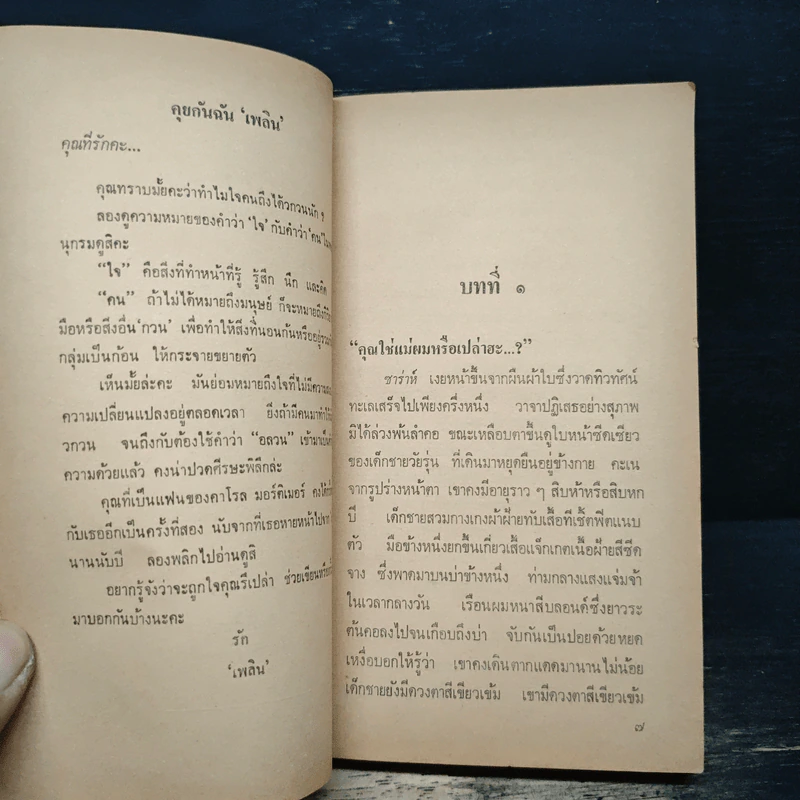 คุยกันฉัน ‘เพลิน’
คุณที่รักคะ...
คุณทราบมั้ยคะว่าทำไมใจคนถึงได้วกวนนัก ?
ลองดูความหมายของคำว่า ‘ใจ’ กับคำว่า ‘คน’
นุกรมดูสิคะ
“ใจ” คือสิ่งที่ทำหน้าที่รู้ รู้สึก นึก และคิด
“คน” ถ้าไม่ได้หมายถึงมนุษย์ ก็จะหมายถึง
มือหรือสิ่งอื่น ‘กวน’ เพื่อทำให้สิ่งที่นอนก้นหรือ
กลุ่มเป็นก้อน ให้กระจายขยายตัว
เห็นมั้ยล่ะคะ มันย่อมหมายถึงใจที่ไม่มี
ความเปลี่ยนแปลงอยู่ตลอดเวลา ยิ่งถ้ามีคนมาทำ
วกวน จนถึงกับต้องใช้คำว่า “อลวน” เข้ามา
ความด้วยแล้ว คงน่าปวดศีรษะพิลึกล่ะ
คุณที่เป็นแฟนของคาโรล มอร์ติเมอร์ คงได้
กับเธออีกเป็นครั้งที่สอง นับจากที่เธอหายหน้าไป
นานนับปี ลองพลิกไปอ่านดูสิ
อยากรู้จังว่าจะถูกใจคุณรึเปล่า ช่วยเขียน
มาบอกกันบ้างนะคะ
รัก
‘เพลิน’
บทที่ ๑
“คุณใช่แม่ผมหรือเปล่าฮะ...?”
ซาร่าห์ เงยหน้าขึ้นจากผืนผ้าใบซึ่งวาดทิวทัศน์
ทะเลเสร็จไปเพียงครึ่งหนึ่ง วาจาปฏิเสธอย่างสุภาพ
มิได้ล่วงพ้นลำคอ ขณะเหลือบตาขึ้นดูใบหน้าซีดเซียว
ของเด็กชายวัยรุ่น ที่เดินมาหยุดยืนอยู่ข้างกาย คะเน
จากรูปร่างหน้าตา เขาคงมีอายุราว ๆ สิบห้าหรือสิบหก
ปี เด็กชายสวมกางเกงผ้าฝ้ายทับเสื้อทีเชิ้ตฟิตแนบ
ตัว มือข้างหนึ่งยกขึ้นเกี่ยวเสื้อแจ็กเกตเนื้อฝ้ายสีซีด
จาง ซึ่งพาดมาบนบ่าข้างหนึ่ง ท่ามกลางแสงแจ่มจ้า
ในเวลากลางวัน เรือนผมหนาสีบลอนด์ซึ่งยาวระ
ต้นคอลงไปจนเกือบถึงบ่า จับกันเป็นปอยด้วยหยด
เหงื่อบอกให้รู้ว่า เขาคงเดินตากแดดมานานไม่น้อย
เด็กชายยังมีดวงตาสีเขียวเข้ม เขามีดวงตาสีเขียวเข้ม
๗